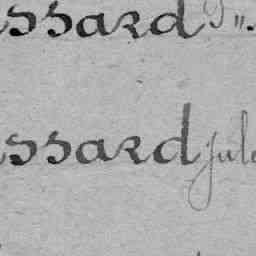 ssard
ssard Jule